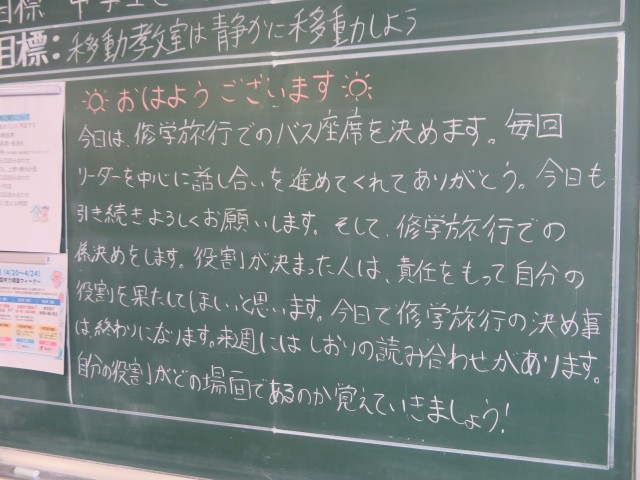 目標 中学生と
目標:移動教室は静かに移動しよう
おはようございます
今日は、修学旅行でのバス座席を決めます。毎回
リーダーを中心に話し合いを進めてくれてありがとう。今日も
引き続きよろしくお願いします。そして、修学旅行での
係決めをします。役割が決まった人は、責任をもって自分の
役割を果たしてほしいと思います。今日で修学旅行の決め事
は、終わりになります。来週にはしおりの読み合わせがあります。
自分の役割がどの場面であるのか覚えていきましょう!
(4/20~4/24)